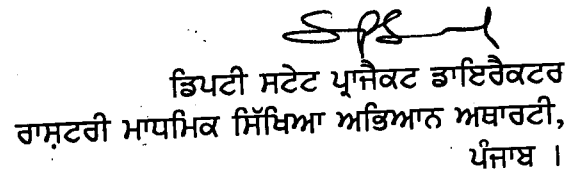 ਡਿਪਟੀ ਸਟੇਟ ਪ੍ਰਾਜੈਕਟ ਡਾਇਰੈਕਟਰ
ਰਾਸ਼ਟਰੀ ਮਾਧਮਿਕ ਸਿੱਖਿਆ ਅਭਿਆਨ ਅਥਾਰਟੀ,
ਪੰਜਾਬ ।